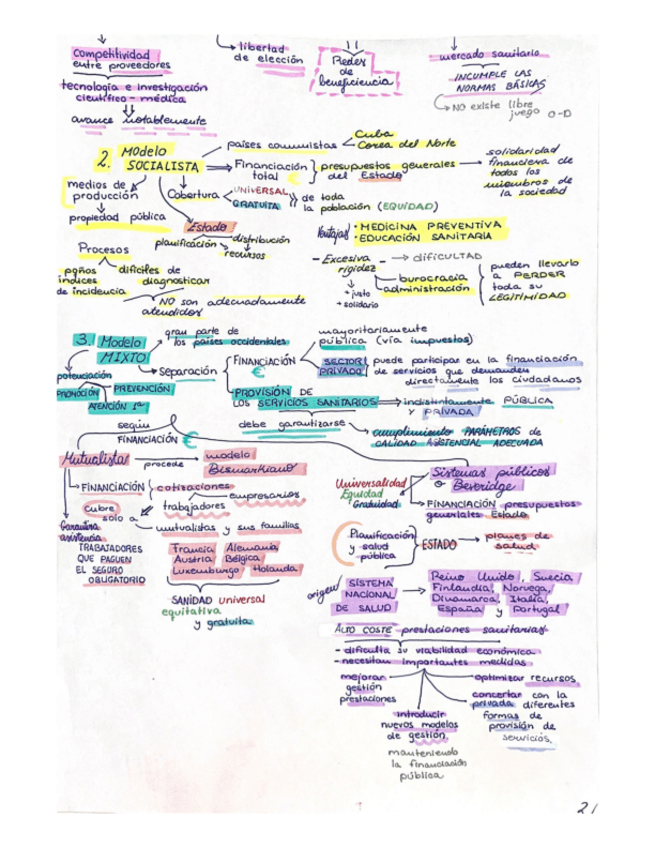 competitividad
entre proveedores
tecnología e investigación
científica - médica
avance notablemente
libertad
de elección
Redes
de
beneficiencia
mercado sanitario
INCUMPLE LAS
NORMAS BÁSICAS
NO existe libre
juego O-D
2. Modelo
SOCIALISTA
países comunistas
Cuba
Corea del Norte
Financiación
total €
presupuestos generales
del Estado
solidaridad
financiera de
todos los
miembros de
la sociedad
medios de
producción
propiedad pública
Cobertura
UNIVERSAL
GRATUITA
de toda
la población (EQUIDAD)
Estado
planificación
distribución
recursos
Ventajas
· MEDICINA PREVENTIVA
· EDUCACIÓN SANITARIA
Procesos
pqños
índices
de incidencia
difíciles de
diagnosticar
NO son adecuadamente
atendidos
- Excesiva
rigidez
DIFICULTAD
+ justo
+ solidario
burocracia
administración
pueden llevarlo
a PERDER
toda su
LEGITIMIDAD
3. Modelo
MIXTO
gran parte de
los países occidentales
potenciación
PROMOCIÓN
PREVENCIÓN
ATENCIÓN 1ª
Separación
FINANCIACIÓN
€
mayoritariamente
pública (vía impuestos)
SECTOR
PRIVADO
puede participar en la financiación
de servicios que demanden
directamente los ciudadanos
PROVISIÓN DE
LOS SERVICIOS SANITARIOS
indistintamente PÚBLICA
Y PRIVADA
debe garantizarse
cumplimiento PARÁMETROS de
CALIDAD ASISTENCIAL ADECUADA
según
FINANCIACIÓN €
Mutualista
procede
modelo
Bismarkiano
FINANCIACIÓN
cotizaciones
empresarios
trabajadores
Cubre
solo a
mutualistas y sus familias
Garantiza
asistencia
TRABAJADORES
QUE PAGUEN
EL SEGURO
OBLIGATORIO
Francia Alemania
Austria Bélgica
Luxemburgo Holanda
SANIDAD universal
equitativa
y gratuita
Sistemas públicos
o Beveridge
Universalidad
Equidad
Gratuidad
FINANCIACIÓN presupuestos
generales Estado
Planificación
y salud
pública
ESTADO
planes de
salud
origen
SISTEMA
NACIONAL
DE SALUD
Reino Unido, Suecia
Finlandia, Noruega,
Dinamarca, Italia,
España y Portugal
ALTO COSTE prestaciones sanitarias
- dificulta su viabilidad económica
- necesitan importantes medidas
mejorar
gestión
prestaciones
introducir
nuevos modelos
de gestión
manteniendo
la financiación
pública
optimizar recursos
concertar con la
privada diferentes
formas de
provisión de
servicios.
21